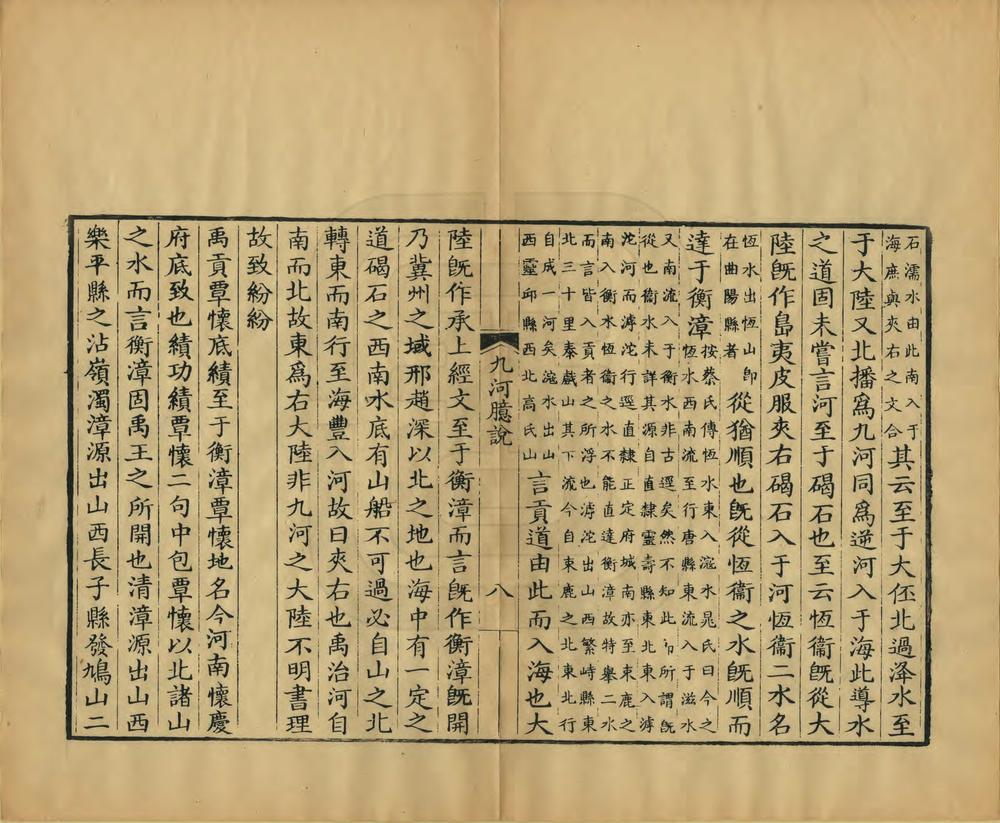 石濡水由此南入于
海庶與夾右之文合
其云至于大伾北過洚水至
于大陸又北播爲九河同爲逆河入于海此導水
之道固未嘗言河至于碣石也至云恆衞旣從大
陸旣作島夷皮服夾右碣石入于河恆衞二水名
恆水出恆山卽
在曲陽縣者
從猶順也旣從恆衞之水旣順而
達于衡漳
按蔡氏傳恆水東入滱水晁氏曰今之
恆水西南流至行唐縣東流入于滋水
又南流入于衡水非古逕矣然不知此卽所謂旣
從也衞水未詳其源自直隸靈壽縣東北東入滹
沱河而滹沱行逕直隸正定府城南亦至束鹿之
南入衡水恆衞之水不能直達衡漳故特舉二水
而言皆入貢者之所浮也滹沱出山西繁峙縣東
北三十里泰戲山其下流今自束鹿之北東北行
自成一河矣滱水出山
西靈邱縣西北高氏山
言貢道由此而入海也大
九河臆說
八
陸旣作承上經文至于衡漳而言旣作衡漳旣開
乃冀州之域邢趙深以北之地也海中有一定之
道碣石之西南水底有山船不可過必自山之北
轉東而南行至海豐入河故曰夾右也禹治河自
南而北故東爲右大陸非九河之大陸不明書理
故致紛紛
禹貢覃懷底績至于衡漳覃懷地名今河南懷慶
府底致也績功績覃懷二句中包覃懷以北諸山
之水而言衡漳固禹王之所開也清漳源出山西
樂平縣之沾嶺濁漳源出山西長子縣發鳩山二